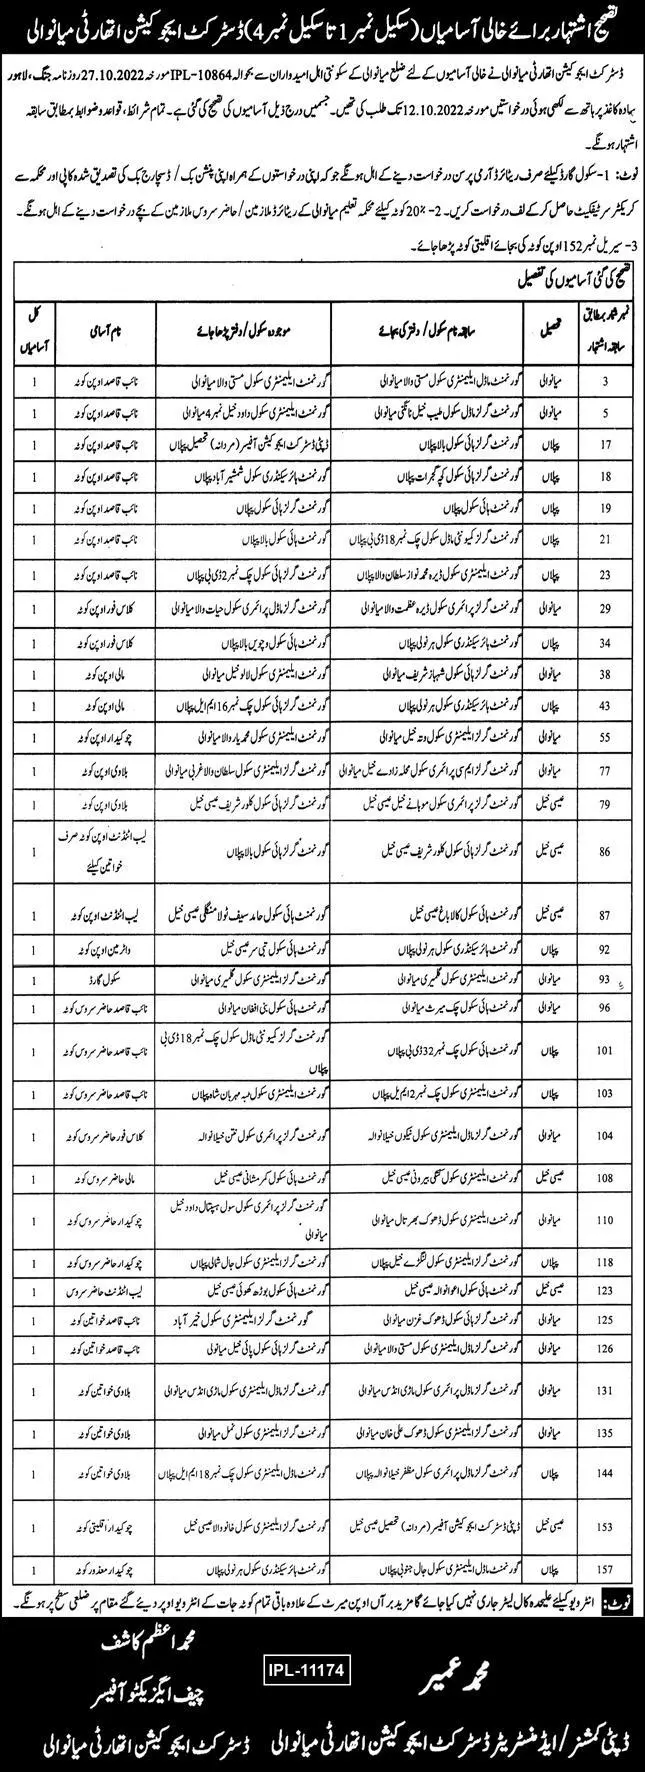 تصحیح اشتہار برائے خالی آسامیاں (سکیل نمبر 1 تا سکیل نمبر 4) ڈسٹرکٹ ایجوکیشن اتھارٹی میانوالی
ڈسٹرکٹ ایجوکیشن اتھارٹی میانوالی نے خالی آسامیوں کے لئے ضلع میانوالی کے سکونتی اہل امیدواران سے بحوالہ IPL-10864 مورخہ 27.10.2022 روزنامہ جنگ، لاہور
سادہ کاغذ پر ہاتھ سے لکھی ہوئی درخواستیں مورخہ 12.10.2022 تک طلب کی تھیں۔ جسمیں درج ذیل آسامیوں کی تصحیح کی گئی ہے۔ تمام شرائط، قواعد و ضوابط بمطابق سابقہ
اشتہار ہونگے۔
نوٹ: 1- سکول گارڈ کیلئے صرف ریٹائرڈ آرمی پرسن درخواست دینے کے اہل ہونگے جو کہ اپنی درخواستوں کے ہمراہ اپنی پنشن بک / ڈسچارج بک کی تصدیق شدہ کاپی اور محکمہ سے
کریکٹر سرٹیفکیٹ حاصل کر کے لف درخواست کریں۔ 2- 20% کوٹہ کیلئے محکمہ تعلیم میانوالی کے ریٹائرڈ ملازمین / حاضر سروس ملازمین کے بچے درخواست دینے کے اہل ہونگے۔
3- سیریل نمبر 152 اوپن کوٹہ کی بجائے اقلیتی کوٹہ پڑھا جائے۔
تصحیح کی گئی آسامیوں کی تفصیل
نمبر شمار بمطابق سابقہ اشتہار تحصیل سابقہ نام سکول / دفتر کی بجائے موجودہ سکول / دفتر پڑھا جائے نام آسامی کل آسامیاں
3 میانوالی گورنمنٹ ماڈل ایلیمنٹری سکول مستی والا میانوالی گورنمنٹ ایلیمنٹری سکول مستی والا میانوالی نائب قاصد اوپن کوٹہ 1
5 میانوالی گورنمنٹ گرلز ماڈل سکول طیب خیل نانگنی میانوالی گورنمنٹ گرلز ہائی سکول داود خیل نمبر 4 میانوالی نائب قاصد اوپن کوٹہ 1
17 پپلاں گورنمنٹ گرلز ہائی سکول بالا پپلاں ڈپٹی ڈسٹرکٹ ایجوکیشن آفیسر (مردانہ) تحصیل پپلاں نائب قاصد اوپن کوٹہ 1
18 پپلاں گورنمنٹ گرلز ہائی سکول کچہ گجرات پپلاں گورنمنٹ ہائر سیکنڈری سکول شمشیر آباد پپلاں نائب قاصد اوپن کوٹہ 1
19 پپلاں گورنمنٹ ہائی سکول پپلاں گورنمنٹ گرلز ہائی سکول پپلاں نائب قاصد اوپن کوٹہ 1
21 پپلاں گورنمنٹ گرلز کمیونٹی ماڈل سکول چک نمبر 18 ڈی بی پپلاں گورنمنٹ ہائی سکول بالا پپلاں نائب قاصد اوپن کوٹہ 1
23 پپلاں گورنمنٹ ایلیمنٹری سکول ڈیرہ محمد نواز سلطان والا پپلاں گورنمنٹ ہائی سکول چک نمبر 2 ڈی بی پپلاں نائب قاصد اوپن کوٹہ 1
29 میانوالی گورنمنٹ گرلز پرائمری سکول ڈیرہ عظمت والا میانوالی گورنمنٹ گرلز ماڈل پرائمری سکول حیات والا میانوالی کلاس فور اوپن کوٹہ 1
34 پپلاں گورنمنٹ ہائر سیکنڈری سکول ہرنولی پپلاں گورنمنٹ ہائی سکول وچویں بالا پپلاں کلاس فور اوپن کوٹہ 1
38 میانوالی گورنمنٹ گرلز ہائی سکول شہباز شریف میانوالی گورنمنٹ ایلیمنٹری سکول لالو خیل میانوالی مالی اوپن کوٹہ 1
43 پپلاں گورنمنٹ ہائر سیکنڈری سکول ہرنولی پپلاں گورنمنٹ گرلز ہائی سکول چک نمبر 16 ایم ایل پپلاں مالی اوپن کوٹہ 1
55 میانوالی گورنمنٹ گرلز ایلیمنٹری سکول وتہ خیل میانوالی گورنمنٹ ایلیمنٹری سکول محمد یار والا میانوالی چوکیدار اوپن کوٹہ 1
77 میانوالی گورنمنٹ گرلز ایم سی پرائمری سکول محلہ زادے خیل میانوالی گورنمنٹ گرلز ایلیمنٹری سکول سلطان والا غربی میانوالی بلاوی اوپن کوٹہ 1
79 عیسیٰ خیل گورنمنٹ گرلز پرائمری سکول موہانے خیل عیسیٰ خیل گورنمنٹ گرلز ہائی سکول کلور شریف عیسیٰ خیل بلاوی اوپن کوٹہ 1
86 عیسیٰ خیل گورنمنٹ گرلز ہائی سکول کلور شریف عیسیٰ خیل گورنمنٹ گرلز ہائی سکول بالا پپلاں لیب اٹنڈنٹ اوپن کوٹہ صرف خواتین کیلئے 1
87 عیسیٰ خیل گورنمنٹ ہائی سکول کالا باغ عیسیٰ خیل گورنمنٹ ہائی سکول حامد سیف ٹولا منگلی عیسیٰ خیل لیب اٹنڈنٹ اوپن کوٹہ 1
92 پپلاں گورنمنٹ ہائر سیکنڈری سکول ہرنولی پپلاں گورنمنٹ ہائی سکول تبی سر عیسیٰ خیل واٹر مین اوپن کوٹہ 1
93 میانوالی گورنمنٹ ایلیمنٹری سکول گلمیری میانوالی گورنمنٹ گرلز ایلیمنٹری سکول گلمیری میانوالی سکول گارڈ 1
96 میانوالی گورنمنٹ ہائی سکول چک میرٹ میانوالی گورنمنٹ ہائی سکول بنی افغان میانوالی نائب قاصد حاضر سروس کوٹہ 1
101 پپلاں گورنمنٹ ہائی سکول چک نمبر 32 ڈی بی پپلاں گورنمنٹ گرلز کمیونٹی ماڈل سکول چک نمبر 18 ڈی بی پپلاں نائب قاصد حاضر سروس کوٹہ 1
103 پپلاں گورنمنٹ ایلیمنٹری سکول چک نمبر 2 ایم ایل پپلاں گورنمنٹ ایلیمنٹری سکول مہربان شاہ پپلاں نائب قاصد حاضر سروس کوٹہ 1
104 میانوالی گورنمنٹ گرلز ماڈل ایلیمنٹری سکول خیلانوالہ گورنمنٹ گرلز پرائمری سکول خیلانوالہ کلاس فور حاضر سروس کوٹہ 1
108 عیسیٰ خیل گورنمنٹ ایلیمنٹری سکول بیرونی عیسیٰ خیل گورنمنٹ ہائی سکول کمر مشانی عیسیٰ خیل مالی حاضر سروس کوٹہ 1
110 میانوالی گورنمنٹ ایلیمنٹری سکول ڈھوک بھرتال میانوالی گورنمنٹ گرلز پرائمری سکول سول ہسپتال داود خیل میانوالی چوکیدار حاضر سروس کوٹہ 1
118 پپلاں گورنمنٹ گرلز ایلیمنٹری سکول لنگڑے خیل پپلاں گورنمنٹ گرلز ایلیمنٹری سکول جال شمالی پپلاں چوکیدار حاضر سروس کوٹہ 1
123 عیسیٰ خیل گورنمنٹ ہائی سکول اعوانوالہ عیسیٰ خیل گورنمنٹ ہائی سکول بوڑھ کھوئی عیسیٰ خیل لیب اٹنڈنٹ حاضر سروس 1
125 میانوالی گورنمنٹ ہائی سکول ڈھوک غزن میانوالی گورنمنٹ گرلز ایلیمنٹری سکول خیر آباد نائب قاصد خواتین کوٹہ 1
126 میانوالی گورنمنٹ گرلز ماڈل ایلیمنٹری سکول مستی والا میانوالی گورنمنٹ گرلز ہائی سکول پائی خیل میانوالی نائب قاصد خواتین کوٹہ 1
131 میانوالی گورنمنٹ گرلز ماڈل پرائمری سکول ماڑی انڈس میانوالی گورنمنٹ گرلز ماڈل ایلیمنٹری سکول ماڑی انڈس میانوالی بلاوی خواتین کوٹہ 1
135 میانوالی گورنمنٹ گرلز ایلیمنٹری سکول ڈھوک علی خان میانوالی گورنمنٹ گرلز ایلیمنٹری سکول نمل میانوالی بلاوی خواتین کوٹہ 1
144 پپلاں گورنمنٹ گرلز ماڈل پرائمری سکول مظفر خیلانوالہ پپلاں گورنمنٹ ماڈل ایلیمنٹری سکول چک نمبر 18 ایم ایل پپلاں بلاوی خواتین کوٹہ 1
153 عیسیٰ خیل ڈپٹی ڈسٹرکٹ ایجوکیشن آفیسر (مردانہ) تحصیل عیسیٰ خیل گورنمنٹ گرلز ایلیمنٹری سکول خانو والا عیسیٰ خیل چوکیدار اقلیتی کوٹہ 1
157 پپلاں گورنمنٹ ماڈل ایلیمنٹری سکول جال جنوبی پپلاں گورنمنٹ ہائر سیکنڈری سکول ہرنولی پپلاں چوکیدار معذور کوٹہ 1
نوٹ: انٹرویو کیلئے علیحدہ کال لیٹر جاری نہیں کیا جائے گا مزید برآں اوپن میرٹ کے علاوہ باقی تمام کوٹہ جات کے انٹرویو اوپر دیئے گئے مقام پر ضلعی سطح پر ہونگے۔
محمد عمیر
ڈپٹی کمشنر / ایڈمنسٹریٹر ڈسٹرکٹ ایجوکیشن اتھارٹی میانوالی
IPL-11174
محمد اعظم کاشف
چیف ایگزیکٹو آفیسر
ڈسٹرکٹ ایجوکیشن اتھارٹی میانوالی